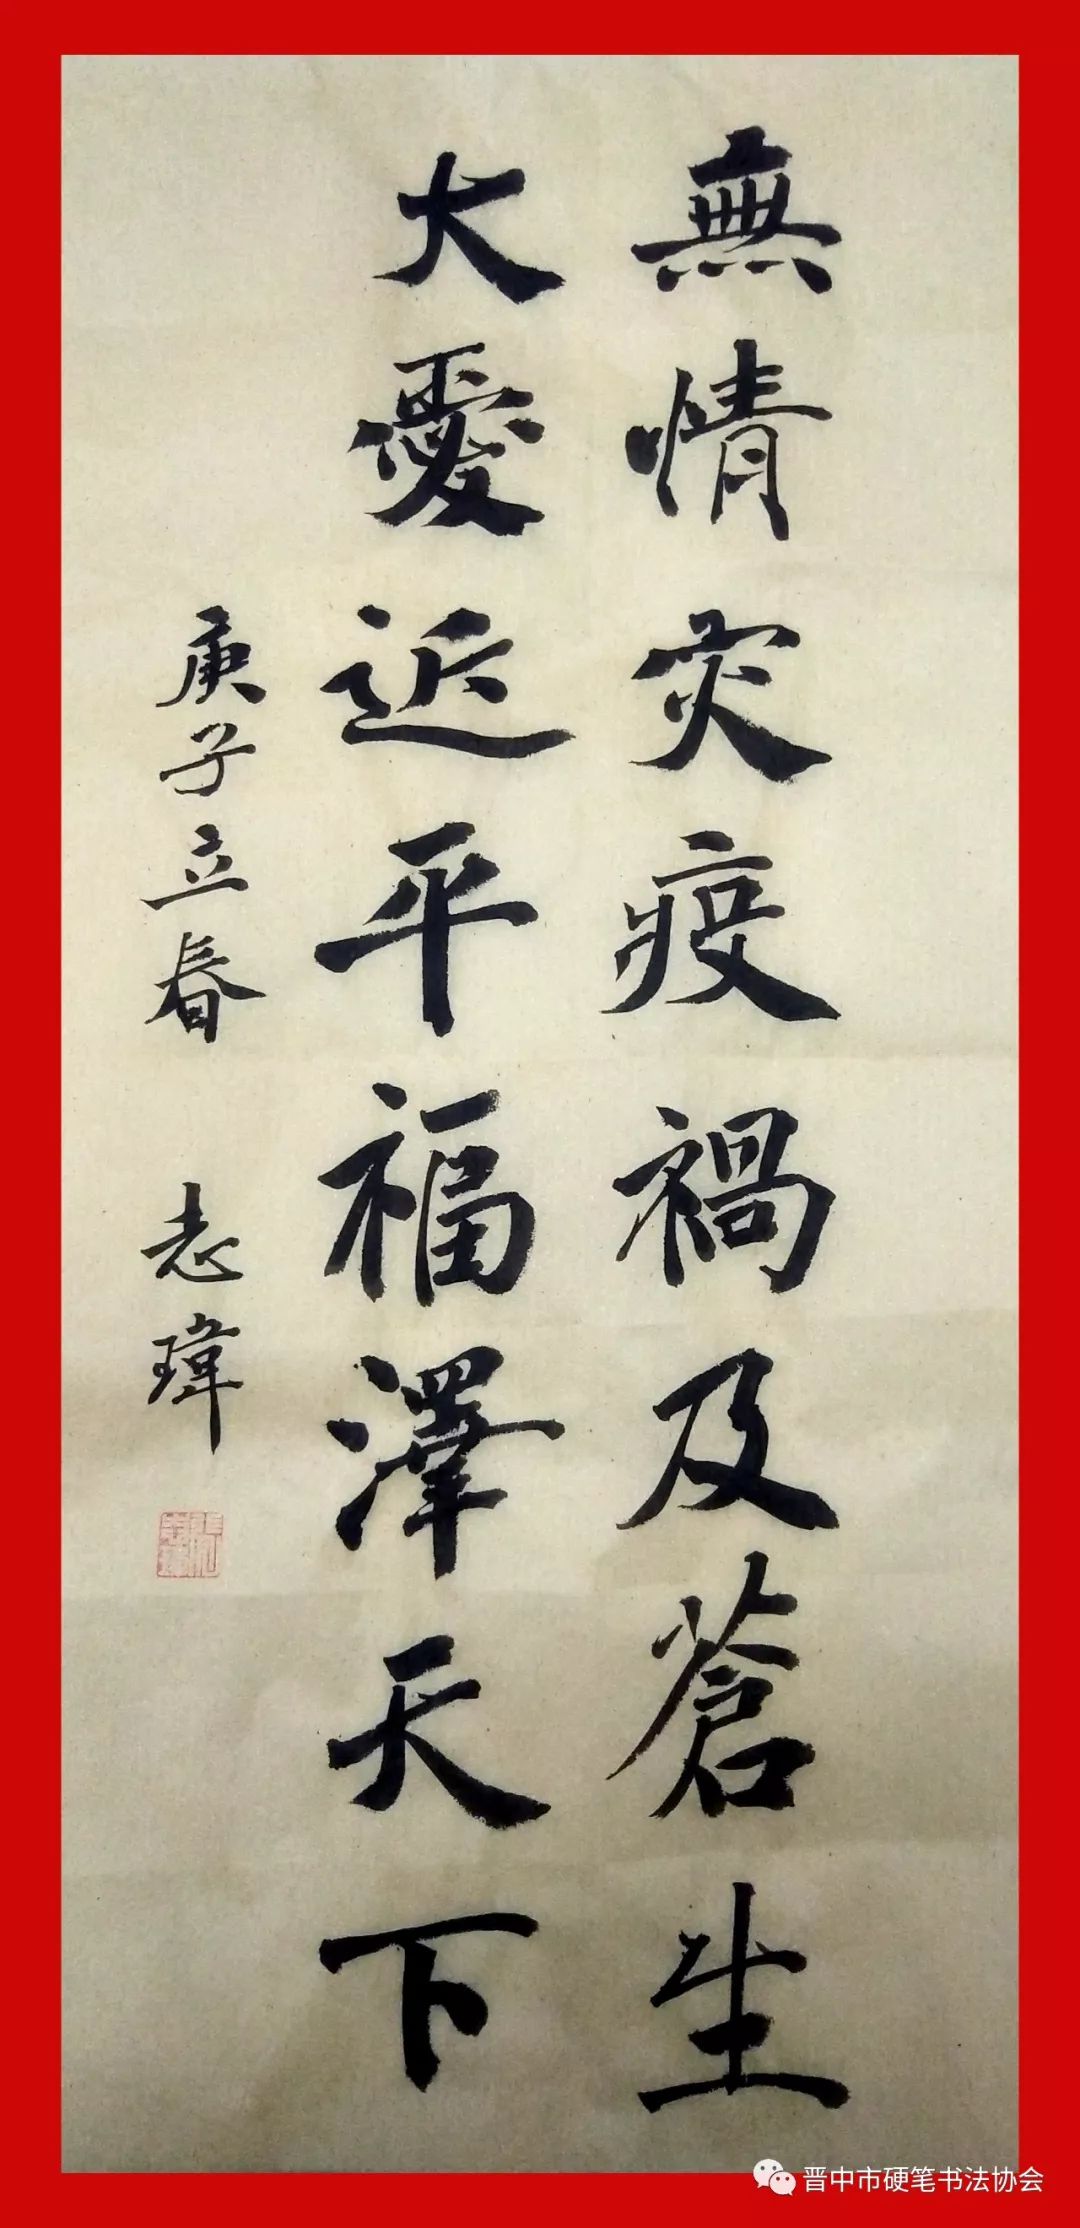 無情灾疫禍及蒼生
大愛近平福澤天下
庚子立春 志瑋
晋中市硬笔书法协会